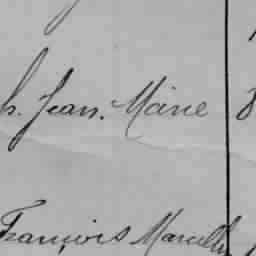 h. Jean. Marie 8
François Marcellin